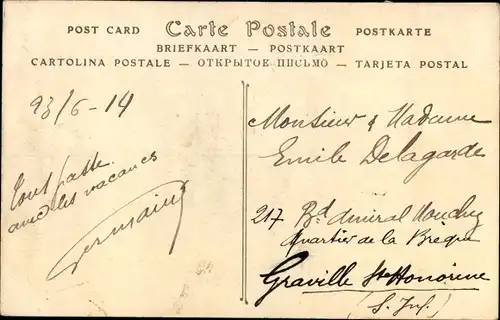 POST CARD Carte Postale POSTKARTE
BRIEFKAART — POSTKAART
CARTOLINA POSTALE — ОТКРЫТОЕ ПИСЬМО — TARJETA POSTAL
23/6-14
Monsieur & Madame
Emile Delagarde
Tout passe
avec les vacances
Germaine
217 Bd amiral Mouchez
Quartier de la Brèque
Graville Ste Honorine
(S. Inf.)